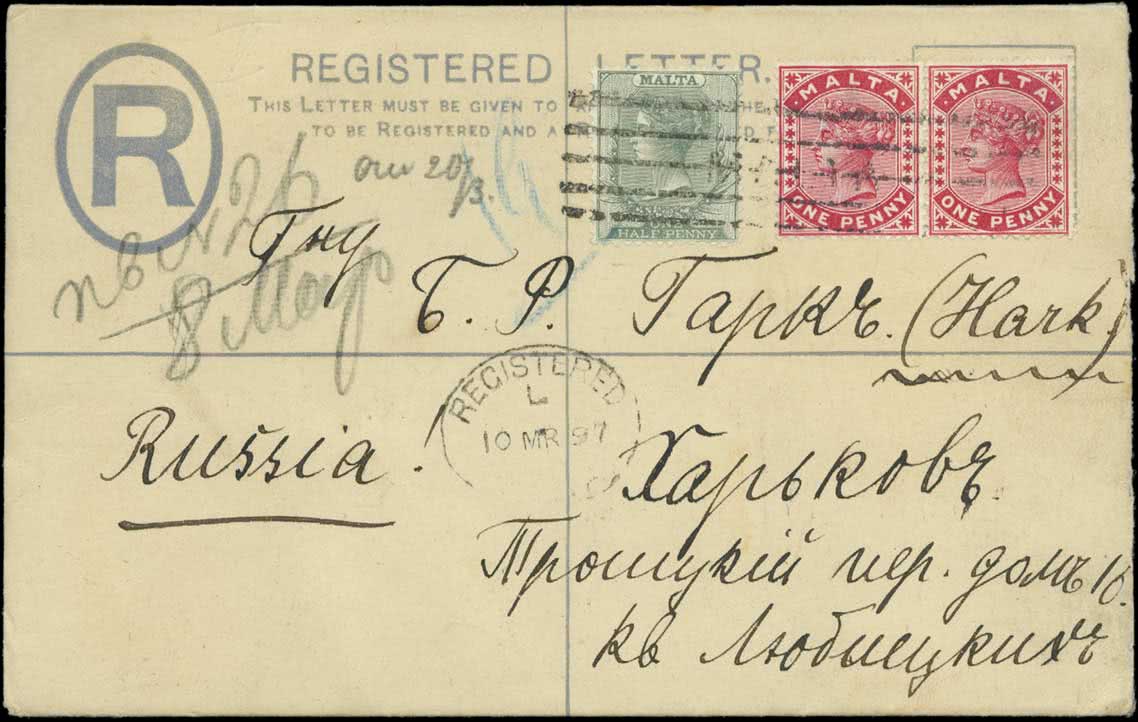 REGISTERED LETTER.
THIS LETTER MUST BE GIVEN TO THE
TO BE REGISTERED AND A
R
MALTA
HALF PENNY
MALTA
ONE PENNY
MALTA
ONE PENNY
20/3.
Гну
Б. Р. Гаркъ. (Hark)
REGISTERED
L
10 MR 97
Russia.
Харьковъ.
Троицкій пер. домъ 16.
кв Любицкихъ